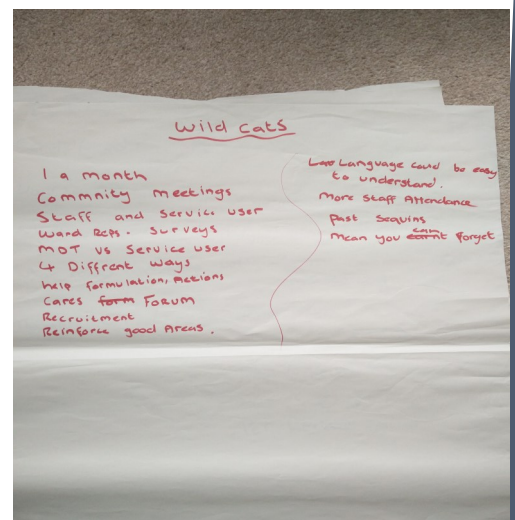 Wild Cats
1 a month
Commnity meetings
Staff and Service user
Ward Reps. Surveys
MDT vs Service user
4 Diffrent Ways
help formulation, Actions
Cares form Forum
Recruitment
Reinforce good Areas.
Language could be easy
to understand.
More Staff Attendance
Past Sequins
Mean you can't Forget